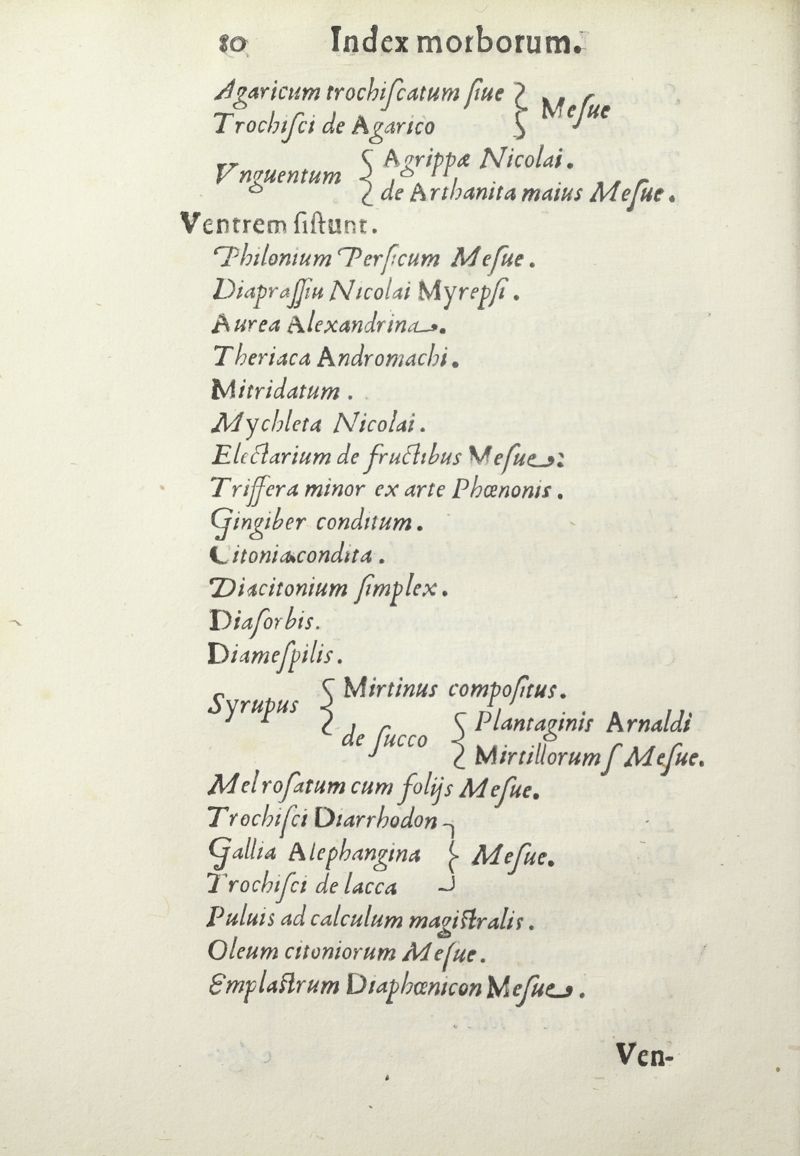 80 Index morborum.
Agaricum trochiſcatum ſiue } Meſue
Trochiſci de Agarico
Vnguentum { Agrippæ Nicolai.
de Arthanita maius Meſue.
Ventrem ſiſtunt.
Philonium Perſicum Meſue.
Diapraſſiu Nicolai Myrepſi.
Aurea Alexandrina.
Theriaca Andromachi.
Mitridatum.
Mychleta Nicolai.
Electarium de fructibus Meſue:
Triffera minor ex arte Phœnonis.
Gingiber conditum.
Citonia condita.
Diacitonium ſimplex.
Diaſorbis.
Diameſpilis.
Syrupus { Mirtinus compoſitus.
de ſucco { Plantaginis Arnaldi
Mirtillorum ſ Meſue.
Mel roſatum cum folijs Meſue.
Trochiſci Diarrhodon
Gallia Alephangina } Meſue.
Trochiſci de lacca
Puluis ad calculum magiſtralis.
Oleum citoniorum Meſue.
Emplaſtrum Diaphœnicon Meſue.
Ven-